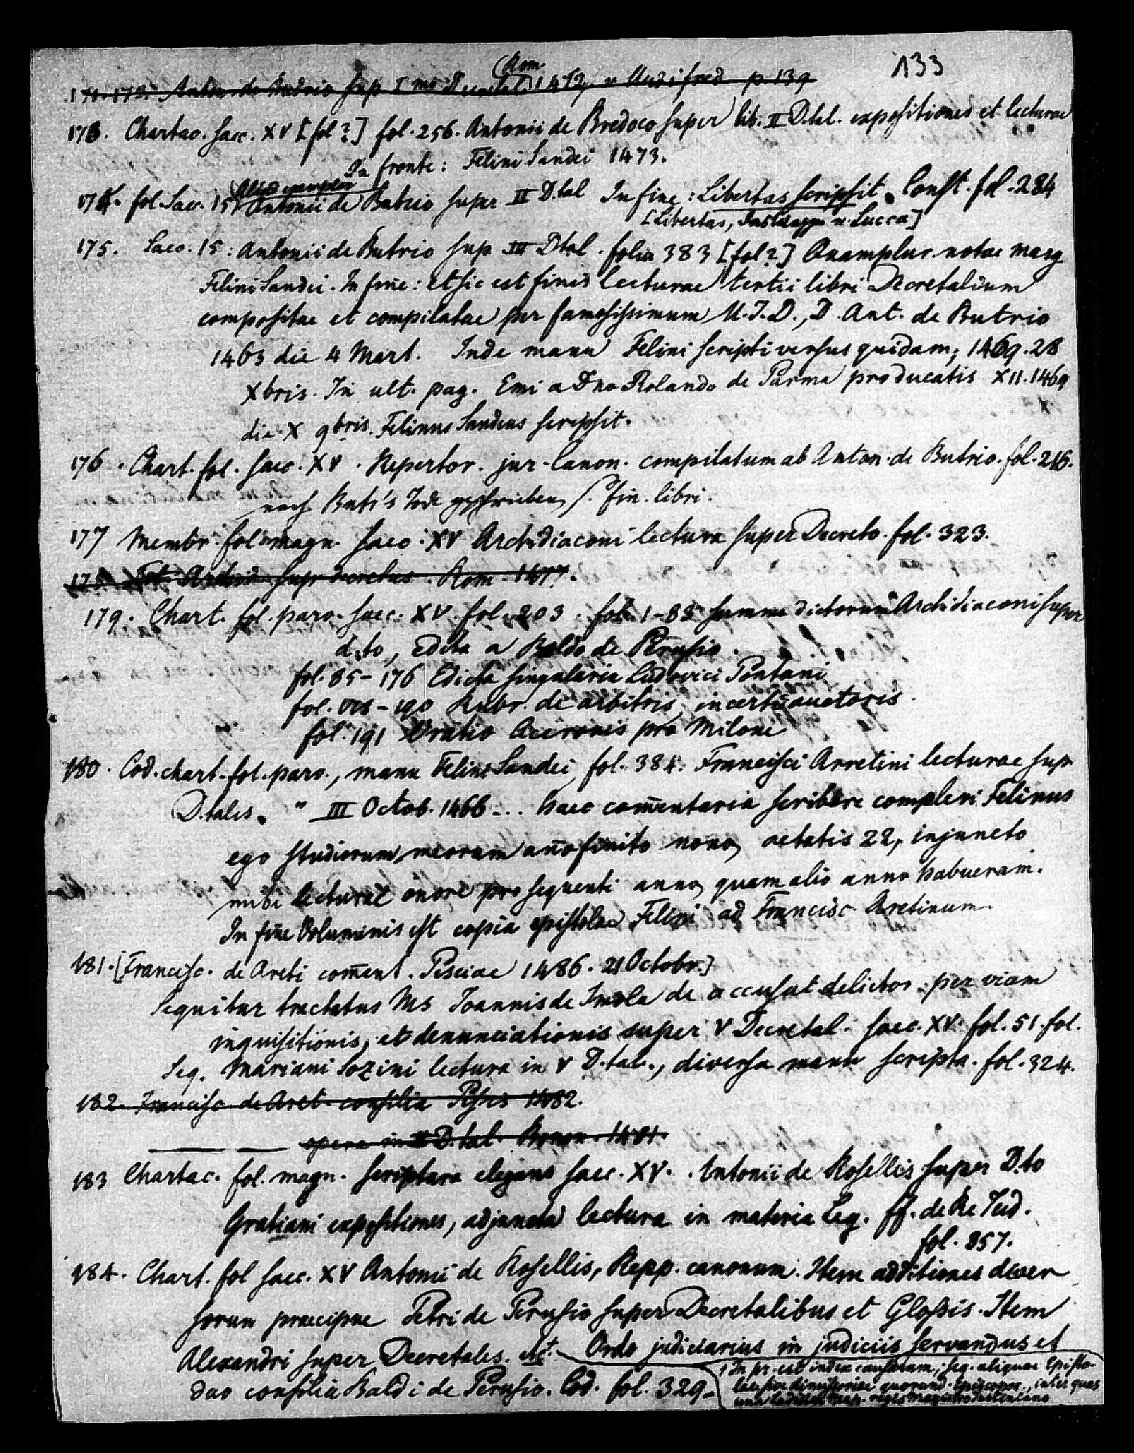 133
Rom
171. 172. Anton. de Butrio sup I 1472, p 139
173. Chartac. saec. XV [fol?] fol. 256. Antonii de Bredoco super lib. II D.tal. expositiones et lecturae
In fronte: Felini Sandei 1473.
174. fol. Saec. 15 Antonii de Butrio super II D.tal In fine: Libertas scripsit. Const. fol. 284
[Libertas, Lucca]
175. Saec. 15: Antonii de Butrio sup III Dtal. folia 383 [fol?] notae marg
Felini Sandei. In fine: Et sic est finis lecturae tertii libri Decretalium
compositae et compilatae per famosissimum U.I.D., D. Ant. de Butrio
1463 die 4 Mart. Inde manu Felini scripti versus quidam, 1469. 28
Xbris. In ult. pag. Emi a Dno Rolando de Parma pro ducatis XII. 1469
die X 9bris. Felinus Sandeus scripsit.
176. Chart. fol. saec. XV. Repertor. jur. Canon. compilatum ab Anton. de Butrio. fol. 216.
nach But's Tode geschrieben, s. fin. libri.
177 Membr. fol. magn. saec. XV Archidiaconi lectura super Decreto. fol. 323.
178. sup Decretus. Rom. 1477.
179. Chart. fol. parv. saec. XV. fol. 203 fol. 1-83 summa dictorum Archidiaconi super
d.to, edita a Baldo de Perusio.
fol. 85-176 Edicta singularia Ludovici Pontani
fol. 190 Rubr. de arbitris, incerti auctoris.
fol. 191 Oratio Ciceronis pro Milone
180. Cod. chart. fol. parv., manu Felini Sandei, fol. 384. Francisci Arretini lecturae sup
D.tales. " III Octob. 1466... haec com̄entaria scribere complevi Felinus
ego studiorum meorum an̄o finito nono, aetatis 22, injuncto
mihi lecturae onore pro sequenti anno, quam alio anno habueram.
In fine Voluminis est copia epistolae Felini ad Francisc. Aretinum.
181. [Francisc. de Areti com̄ent. Pisciae 1486. 21 Octobr.]
Sequitur tractatus Ms Joannis de Imola de accusat delictor. per viam
inquisitionis, et denunciationis super V Decretal. saec. XV. fol. 51. fol.
Seq. Mariani Sozini lectura in V D.tal., diversa manu scripta. fol. 324.
182. Francisc. de Aret. consilia Pisis 1482.
opera in II D.tal. Bonon. 1481.
183 Chartac. fol. magn. scriptura elegans saec. XV. Antonii de Rosellis super D.to
Gratiani expositiones, adjuncta lectura in materia Leg. ff. de Re Jud.
fol. 357.
184. Chart. fol saec. XV Antonii de Rosellis, Repp. canonum. Item additiones diver
sorum praecipue Petri de Perusio super Decretalibus et Glossis. Item
Alexandri super Decretales. et. Ordo judiciarius in judiciis servandus et
duo consilia Baldi de Perusio. Cod. fol. 329.
In pr. est index causarum; seq. aliquae Episto-
lae pro quorund. episcopor., inter quas
una